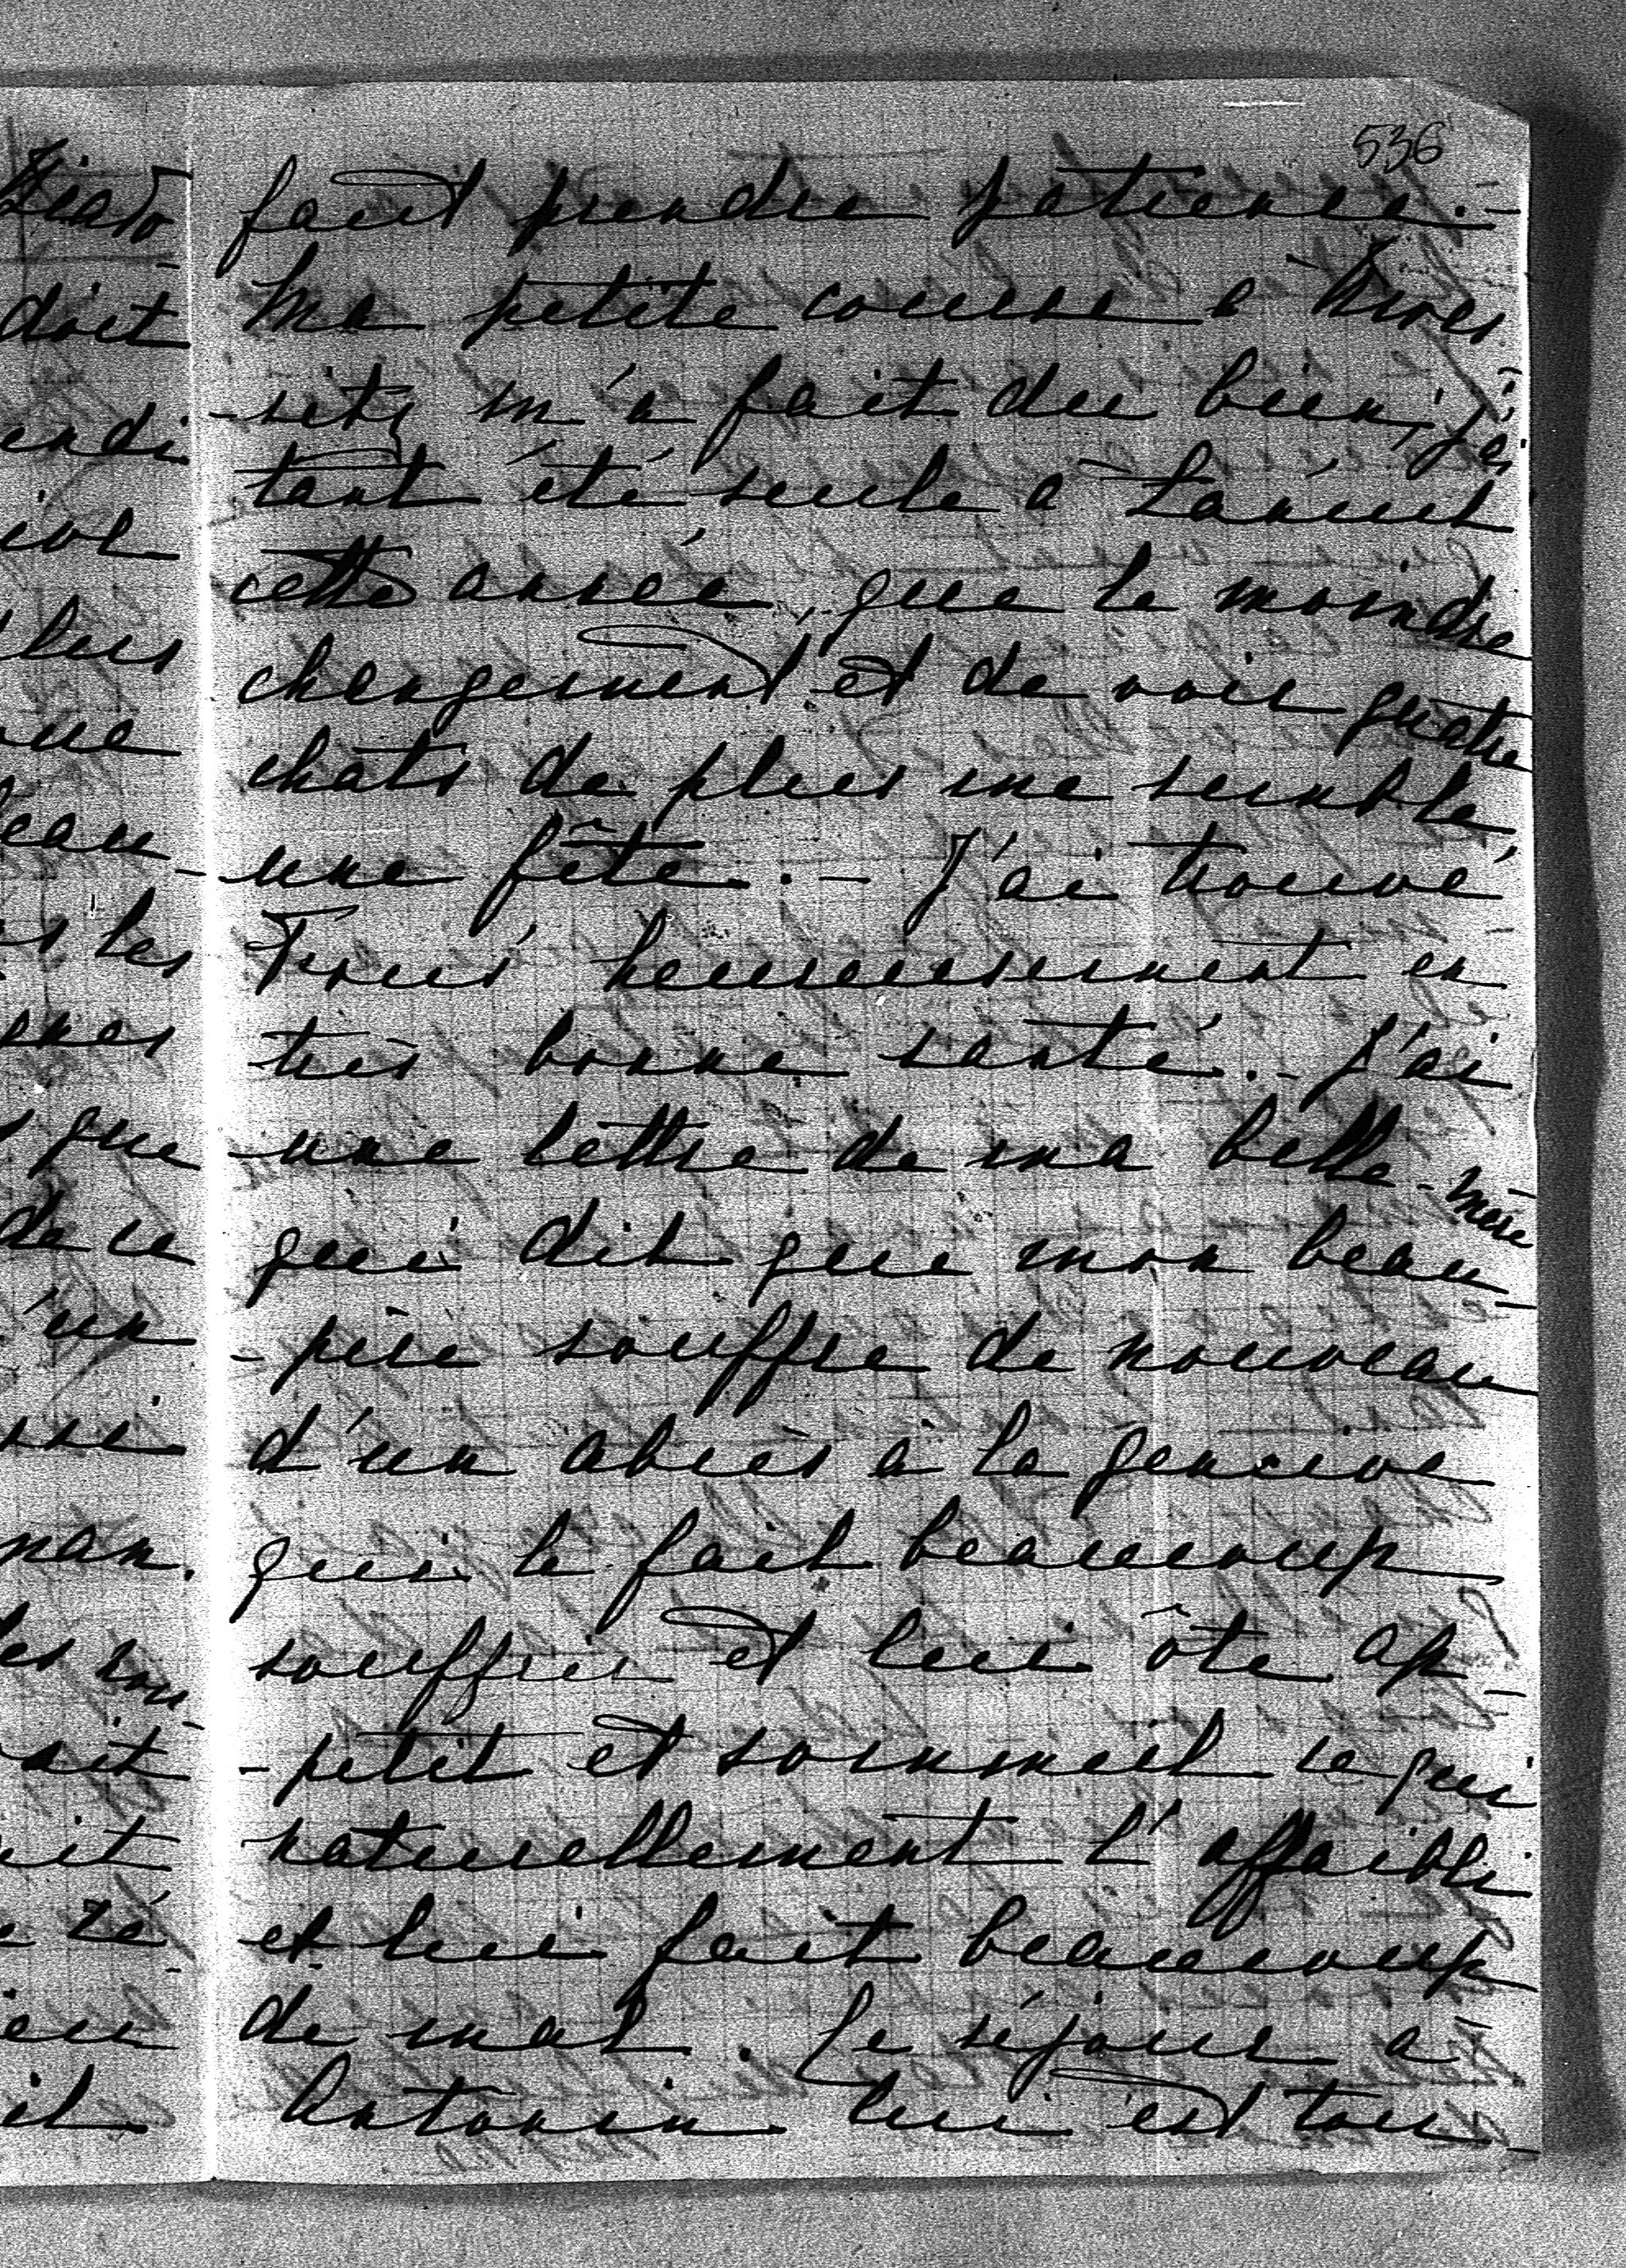 536
faut prendre patience. -
Ma petite course à Kives
-setz m'a fait du bien, j'ai
tant été seule à Lancut
cette année, que le moindre
changement et de voir quatre
chats de plus me semble
une fête. - J'ai trouvé
heureusement en
très bonne santé. - J'ai
une lettre de ma belle-mère
qui dit que mon beau-
-père souffre de nouveau
d'un abcès à la gencive
qui le fait beaucoup
souffrir et lui ôte ap-
-petit et sommeil ce qui
naturellement l'affaibli
et lui fait beaucoup
de mal. Le séjour à
Antonin lui est tou-
doit
endi
que
de ce
'un
man.